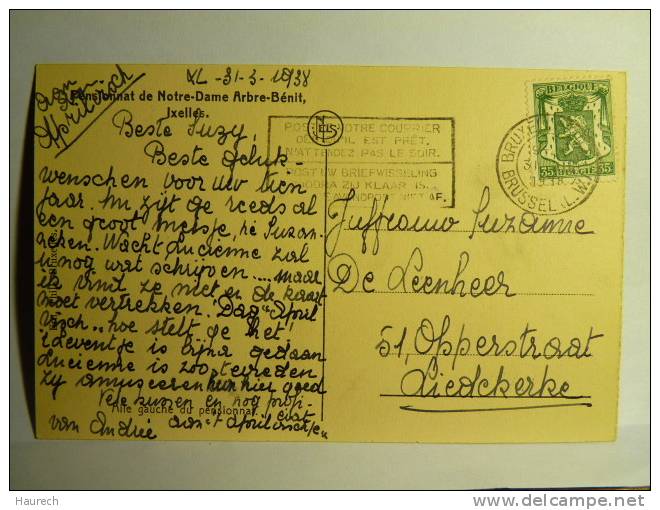 XL - 31-3-1938
aan
Aprilvisch
Pensionnat de Notre-Dame Arbre-Bénit,
Ixelles.
Beste Suzy,
Beste geluk-
wenschen voor uw tien
jaar. Nu zijt ge reeds al
een groot meisje, hé Suzan-
neken. Wacht Lucienne zal
u nog wat schrijven .... maar
ik vind ze niet en de kaart
moet vertrekken. Dag April
visch.. hoe stelt ge het!
't Leventje is bijna gedaan
Lucienne is zoo tevreden
zij amuseeren hun hier goed
Vele kussen en nog profi-
ciat
Aile gauche du pensionnat
van Andrée aan 't Aprilvischje
NELS
POSTEZ VOTRE COURRIER
DÈS QU'IL EST PRÊT.
N'ATTENDEZ PAS LE SOIR.
POST UW BRIEFWISSELING
ZOODRA ZIJ KLAAR IS.
AVONDPOST NIET AF.
BELGIQUE
35 BELGIE 35
BRUSSEL (L.W.)
Juffrouw Suzanne
De Leenheer
51, Opperstraat
Liedekerke
Haurech
delcampe.net